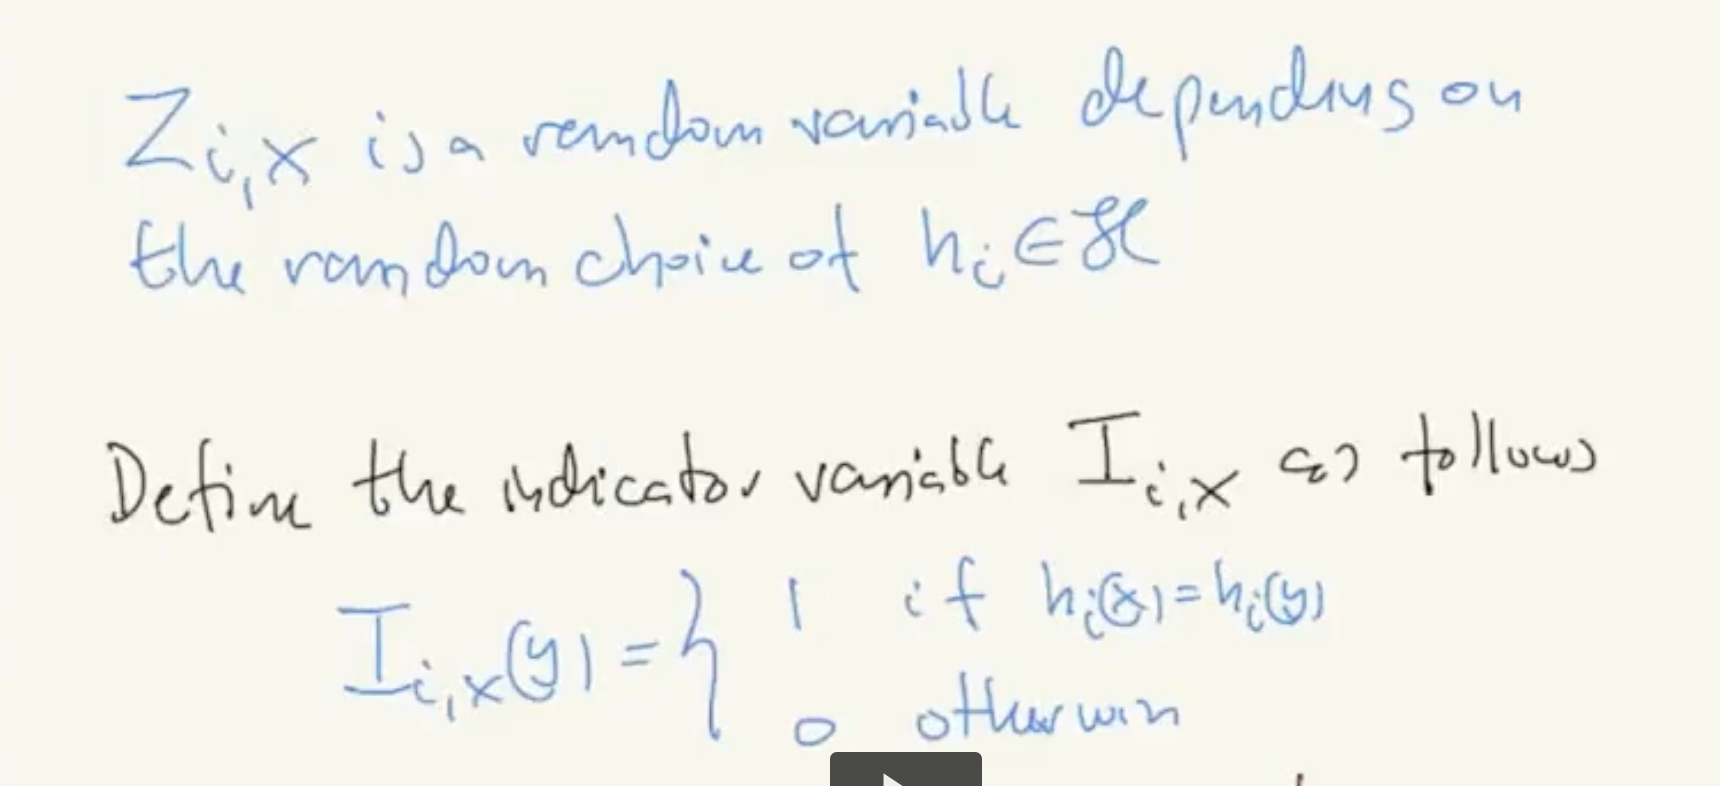 Z_{i,x} is a random variable depending on
the random choice of h_i ∈ ℋ
Define the indicator variable I_{i,x} as follows
I_{i,x}(y) = { 1 if h_i(x) = h_i(y)
0 otherwise